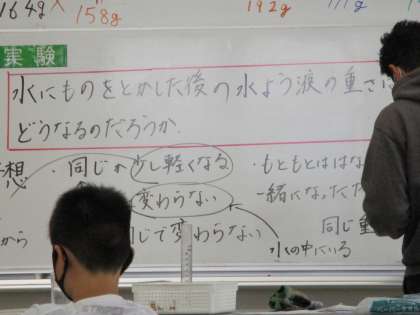 164g
158g
192g
実験
水にものをとかした後の水よう液の重さは
どうなるのだろうか.
想
・同じか少し軽くなる
変わらない
じで変わらない
水の中にいる
から
・もともとはは
一緒に
同じ重